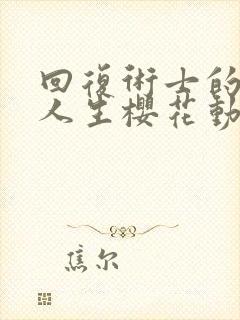 回復術士的
人生櫻花動
焦尔